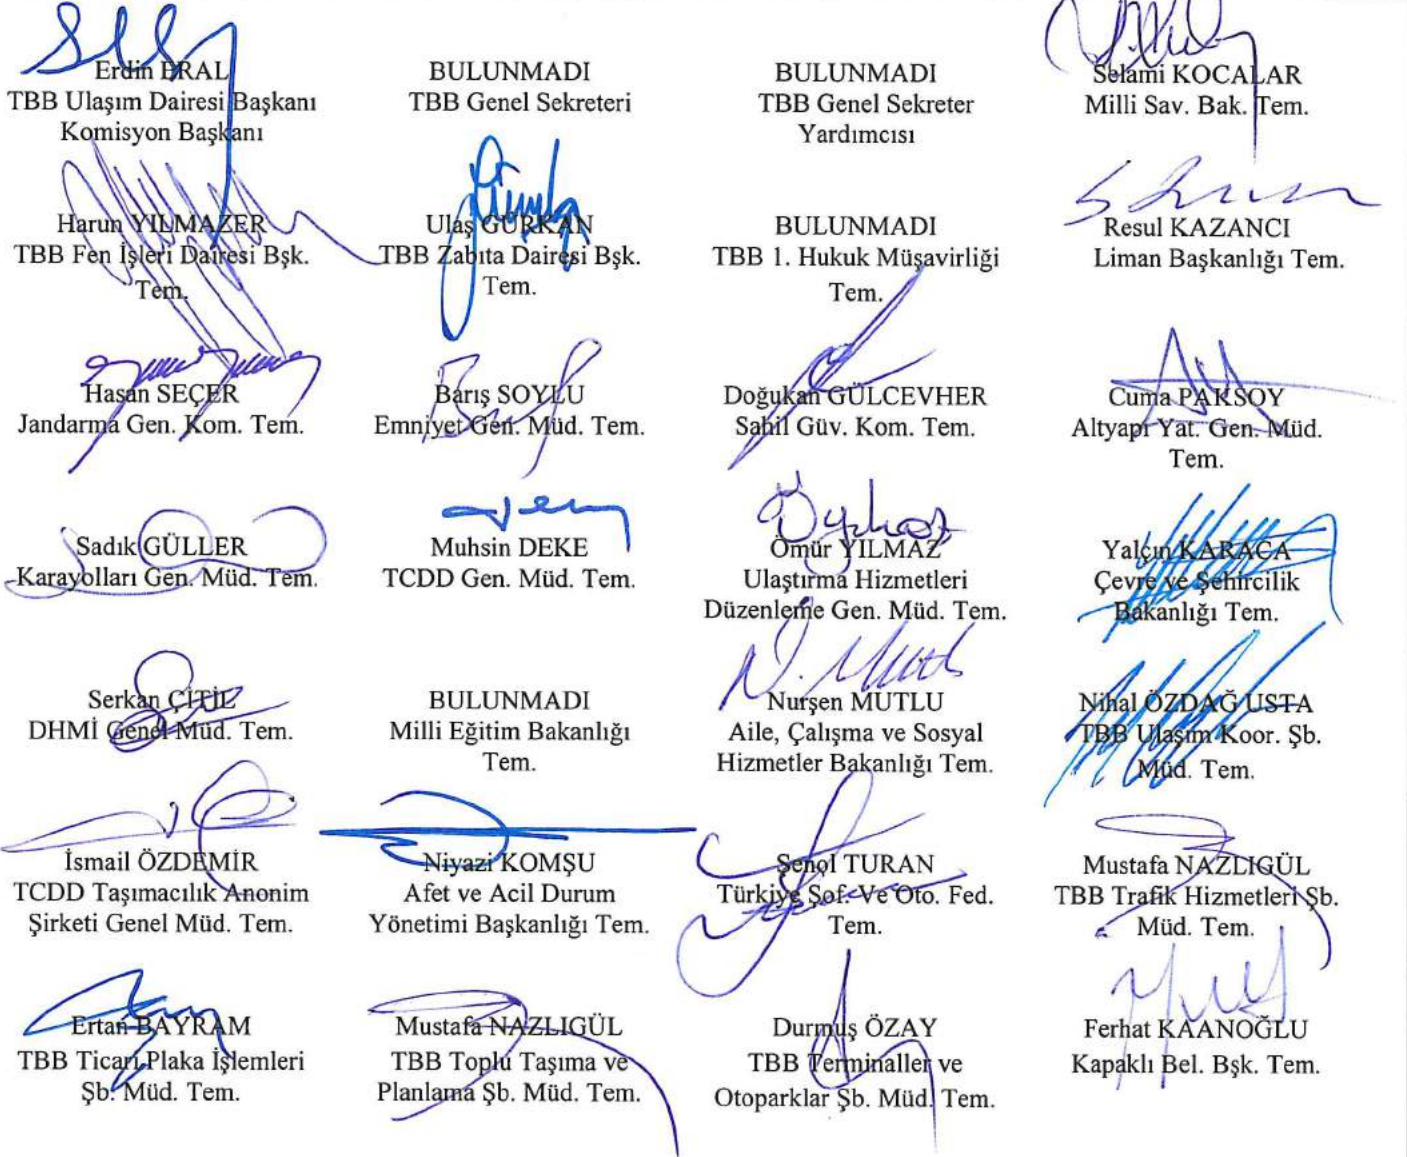 Erdin ERAL
TBB Ulaşım Dairesi Başkanı
Komisyon Başkanı
BULUNMADI
TBB Genel Sekreteri
BULUNMADI
TBB Genel Sekreter
Yardımcısı
Selami KOCALAR
Milli Sav. Bak. Tem.
Harun YILMAZER
TBB Fen İşleri Dairesi Bşk.
Tem.
Ulaş GÜRKAN
TBB Zabıta Dairesi Bşk.
Tem.
BULUNMADI
TBB 1. Hukuk Müşavirliği
Tem.
Resul KAZANCI
Liman Başkanlığı Tem.
Hasan SEÇER
Jandarma Gen. Kom. Tem.
Barış SOYLU
Emniyet Gen. Müd. Tem.
Doğukan GÜLCEVHER
Sahil Güv. Kom. Tem.
Cuma PAKSOY
Altyapı Yat. Gen. Müd.
Tem.
Sadık GÜLLER
Karayolları Gen. Müd. Tem.
Muhsin DEKE
TCDD Gen. Müd. Tem.
Ömür YILMAZ
Ulaştırma Hizmetleri
Düzenleme Gen. Müd. Tem.
Yalçın KARACA
Çevre ve Şehircilik
Bakanlığı Tem.
Serkan ÇİTİL
DHMİ Genel Müd. Tem.
BULUNMADI
Milli Eğitim Bakanlığı
Tem.
N. Mutlu
Nurşen MUTLU
Aile, Çalışma ve Sosyal
Hizmetler Bakanlığı Tem.
Nihal ÖZDAĞ USTA
TBB Ulaşım Koor. Şb.
Müd. Tem.
İsmail ÖZDEMİR
TCDD Taşımacılık Anonim
Şirketi Genel Müd. Tem.
Niyazi KOMŞU
Afet ve Acil Durum
Yönetimi Başkanlığı Tem.
Şenol TURAN
Türkiye Şof. Ve Oto. Fed.
Tem.
Mustafa NAZLIGÜL
TBB Trafik Hizmetleri Şb.
Müd. Tem.
Ertan BAYRAM
TBB Ticari Plaka İşlemleri
Şb. Müd. Tem.
Mustafa NAZLIGÜL
TBB Toplu Taşıma ve
Planlama Şb. Müd. Tem.
Durmuş ÖZAY
TBB Terminaller ve
Otoparklar Şb. Müd. Tem.
Ferhat KAANOĞLU
Kapaklı Bel. Bşk. Tem.